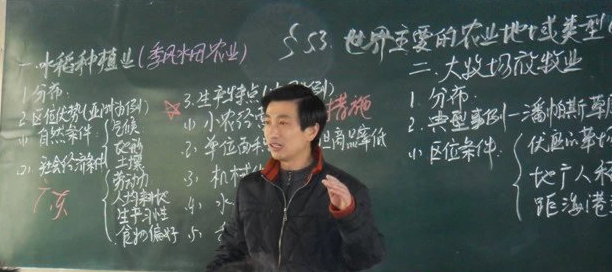 § 3. 世界主要的农业地域类型
一.水稻种植业(季风水田农业)
1. 分布.
2. 区位优势(亚洲为例)
(1) 自然条件
气候
地形
土壤
(2) 社会经济条件
劳动力
人均耕地
生产习性
食物偏好
3. 生产特点
措施
(1) 小农经
2. 单位面积 但商品率低
3. 机械
4. 水
5.
二.大牧场放牧业
1. 分布.
2. 典型事例—潘帕斯草
(1) 区位条件.
优越的草
地广人
距海港